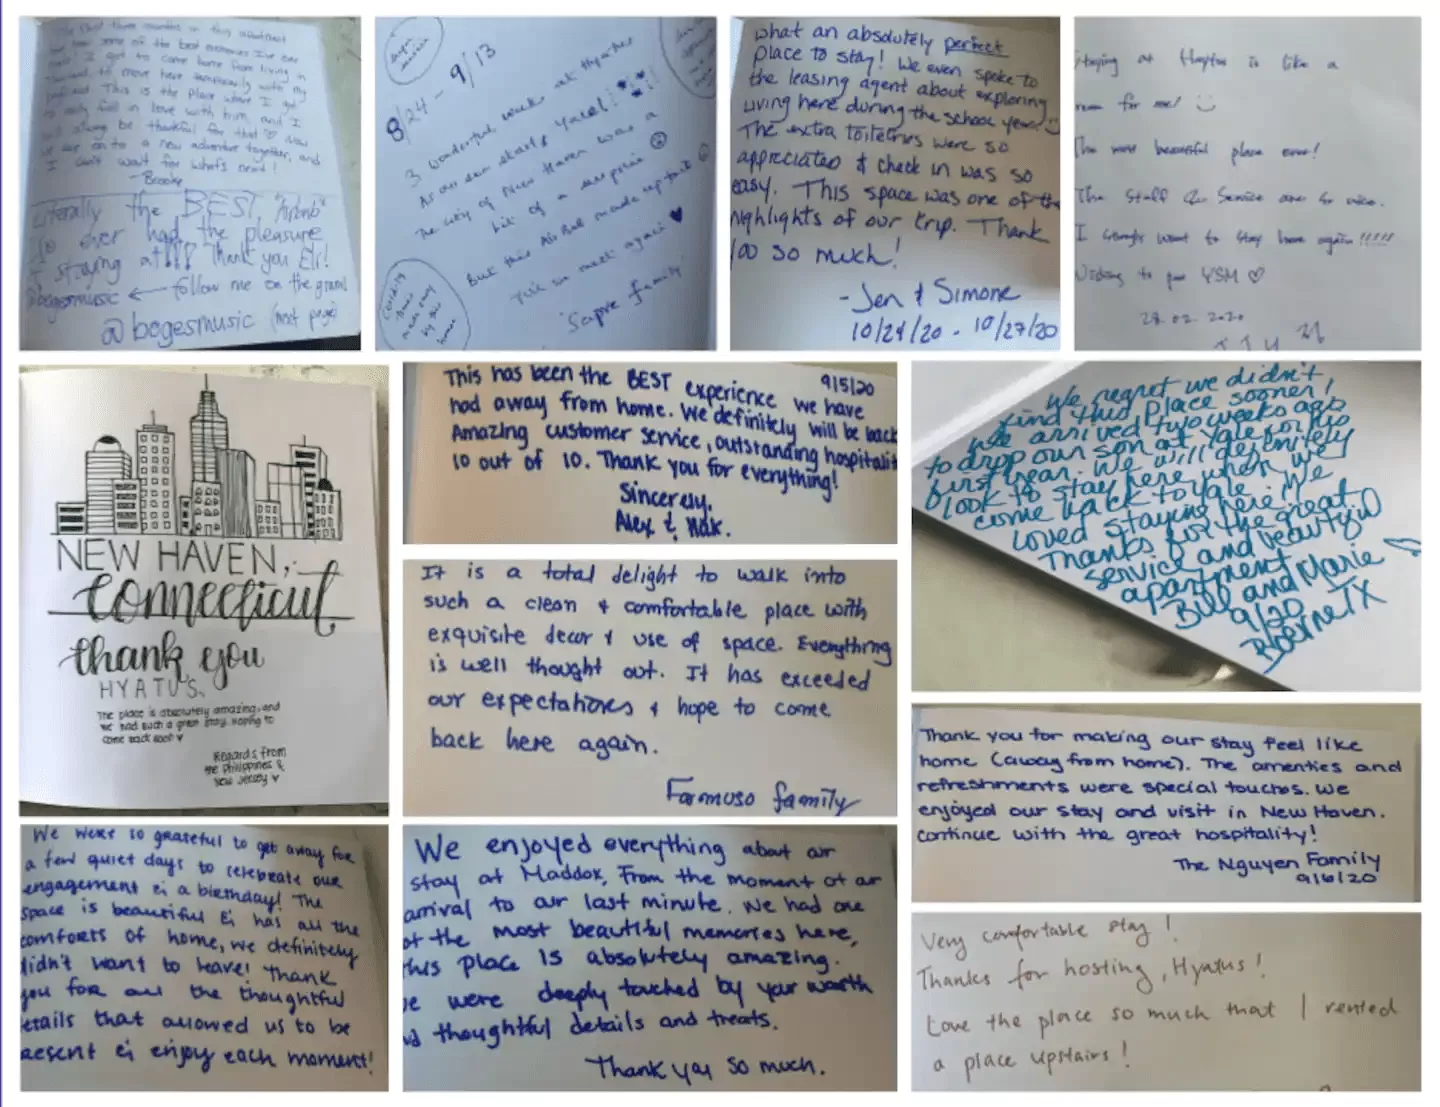 The past three months in this apartment
have been some of the best memories I've ever
made! I got to come home from living in
to move here temporarily with my
This is the place where I got
to really fall in love with him, and I
will always be thankful for that ♡ Now
we are on to a new adventure together, and
I can't wait for what's next!
- Brooke
Literally the BEST "Airbnb"
I've ever had the pleasure
of staying at!!! Thank you Eli!
@bogesmusic ← follow me on the gram!
@bogesmusic (next page)
8/24 - 9/13
3 wonderful weeks all together
As our son starts Yale!
The city of New Haven was a
bit of a surprise ☹
But this Air BnB made up for it ☺
Till we meet again ♥
Sapre family
What an absolutely perfect
place to stay! We even spoke to
the leasing agent about exploring
living here during the school year! ☺
The extra toiletries were so
appreciated & check in was so
easy. This space was one of the
highlights of our trip. Thank
you so much!
- Jen & Simone
10/24/20 - 10/27/20
Staying at Hyatus is like a
for me! ☺
The most beautiful place ever!
The staff & Service are so nice.
I want to stay here again!!!!!
YSM ♡
28.02.2020
NEW HAVEN,
Connecticut
thank you
HYATUS
The place is absolutely amazing, and
we had such a great stay. Hoping to
come back soon ♥
Regards from
the Philippines &
New Jersey ♥
9/5/20
This has been the BEST experience we have
had away from home. We definitely will be back
Amazing customer service, outstanding hospitalit
10 out of 10. Thank you for everything!
Sincerely,
Alex & Mak.
We regret we didn't
find this place sooner!
We arrived two weeks ago
to drop our son at Yale for his
first year. We will definitely
look to stay here when we
come back to Yale. We
loved staying here.
Thanks for the great
service and beautiful
apartment
Bill and Marie
9/20
Boerne TX
It is a total delight to walk into
such a clean & comfortable place with
exquisite decor & use of space. Everything
is well thought out. It has exceeded
our expectations & hope to come
back here again.
Formuso family
Thank you for making our stay feel like
home (away from home). The amenties and
refreshments were special touches. We
enjoyed our stay and visit in New Haven.
Continue with the great hospitality!
The Nguyen Family
9/6/20
We were so grateful to get away for
a few quiet days to celebrate our
engagement & a birthday! The
space is beautiful & has all the
comforts of home, we definitely
didn't want to leave! Thank
you for all the thoughtful
etails that allowed us to be
resent & enjoy each moment!
We enjoyed everything about our
stay at Maddox, From the moment of our
arrival to our last minute. We had one
of the most beautiful memories here,
this place is absolutely amazing.
we were deeply touched by your warth
nd thoughtful details and treats.
Thank you so much.
Very comfortable stay!
Thanks for hosting, Hyatus!
Love the place so much that I rented
a place upstairs!